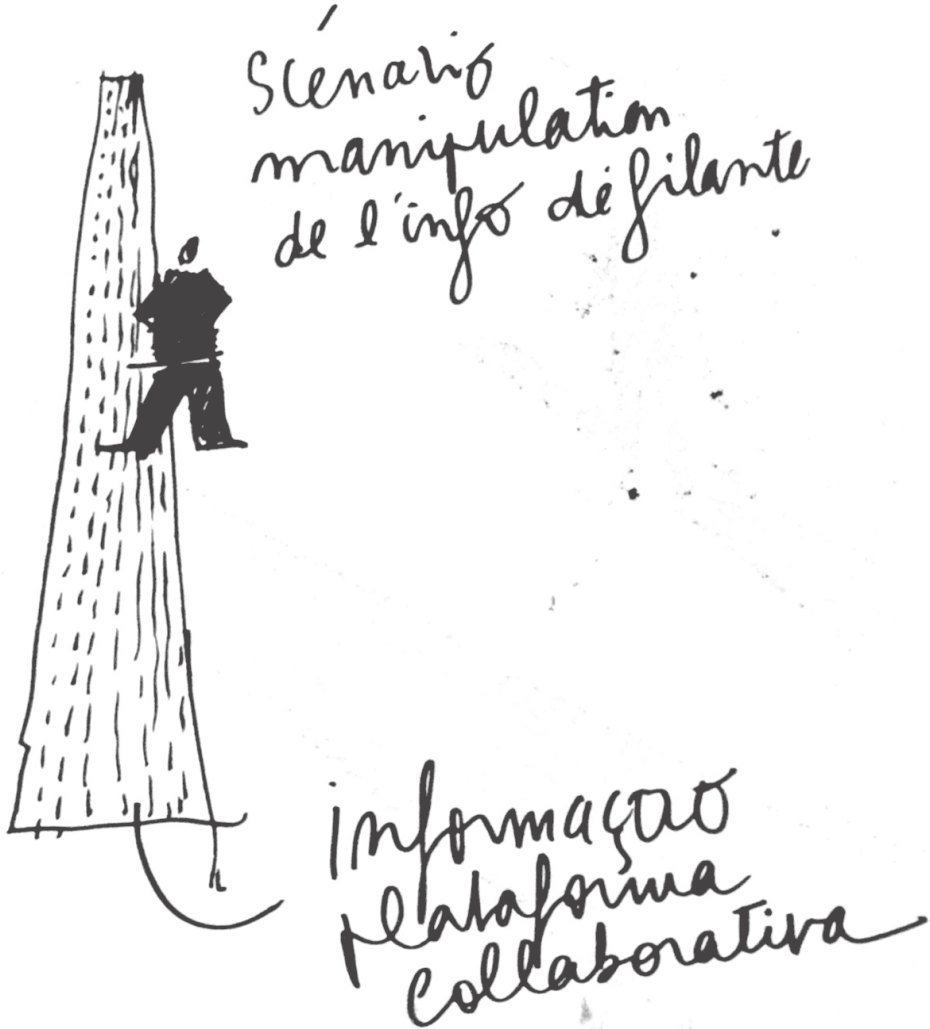 Scénario
manipulation
de l'info défilante
informaçao
plataforma
collaborativa